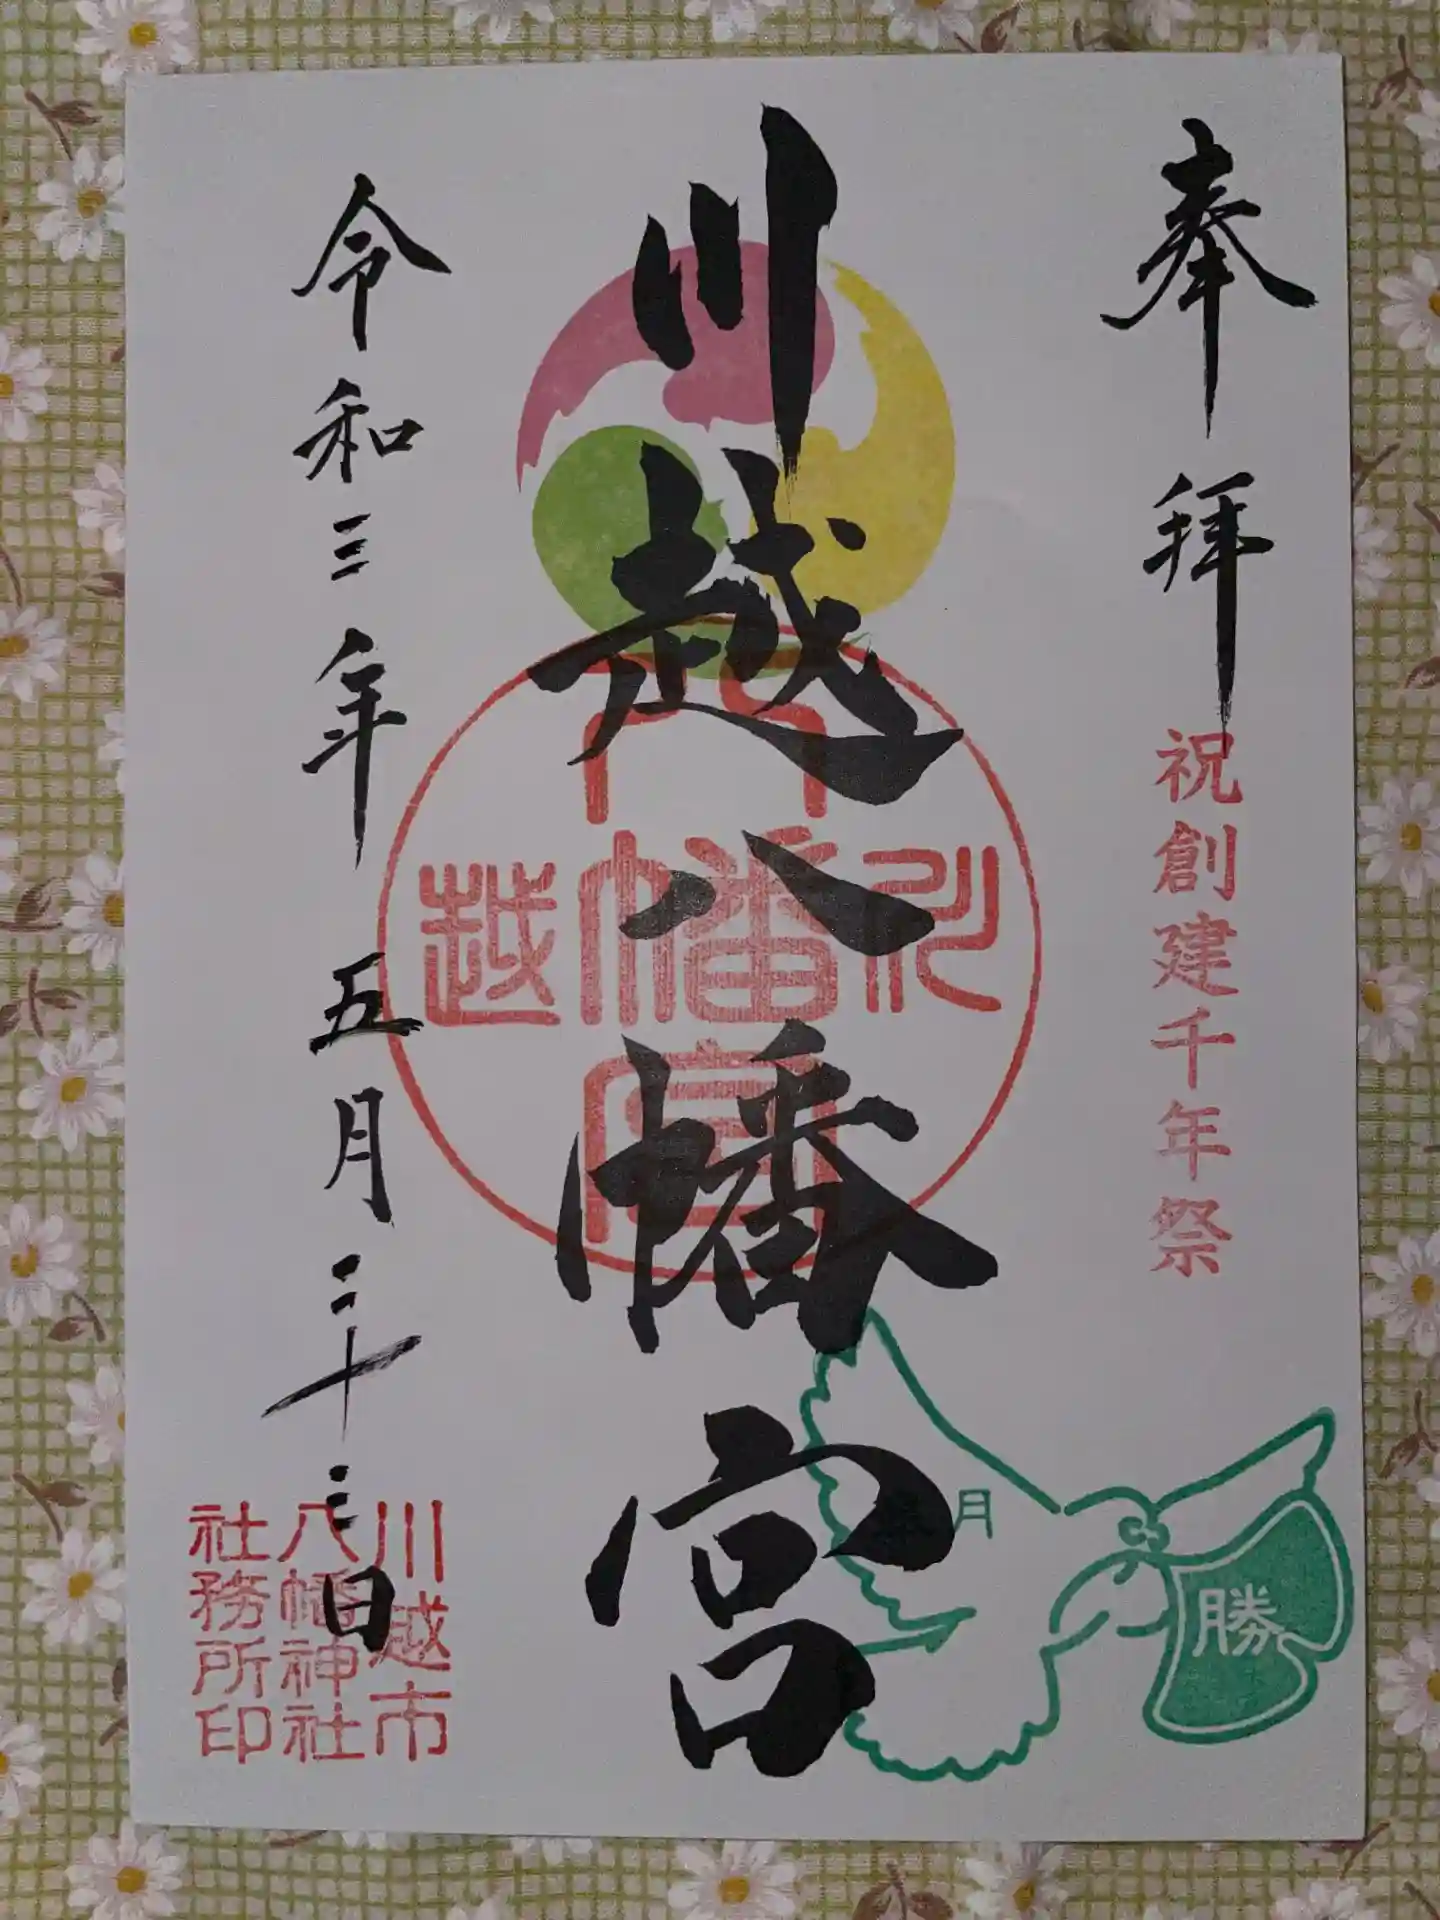 奉拝
祝創建千年祭
川越八幡宮
八
川幡越
宮
月
勝
令和三年五月二十二日
川越市
八幡神社
社務所印